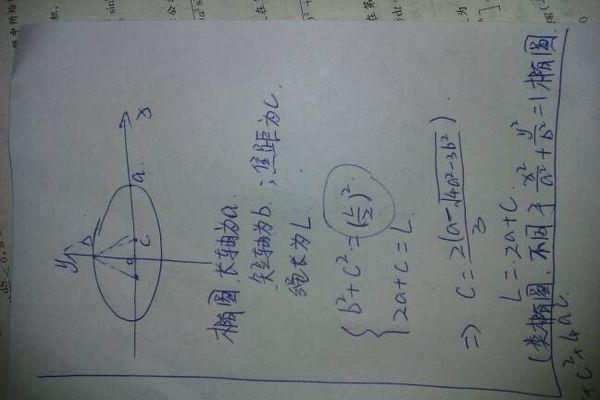 y
b
o
c
a
x
椭圆.长轴为a.
短轴为b.;焦距为c.
绳长为L.
b²+c²=(L/2)².
2a+c=L.
⇒ c=2(a-√4a²-3b²)/3.
L=2a+c.
(类椭圆,不同于 x²/a²+y²/b²=1椭圆.